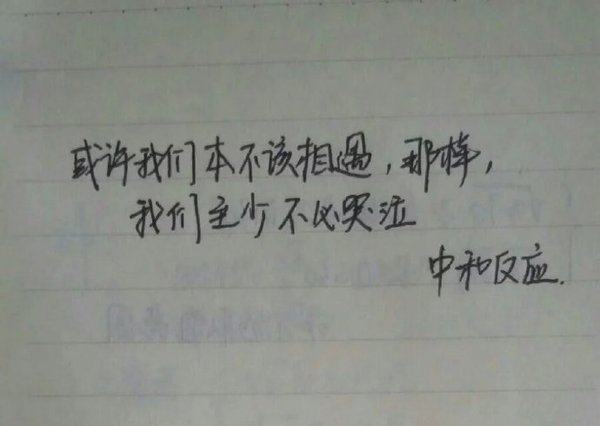 或许我们本不该相遇，那样，
我们至少不必哭泣
中和反应.